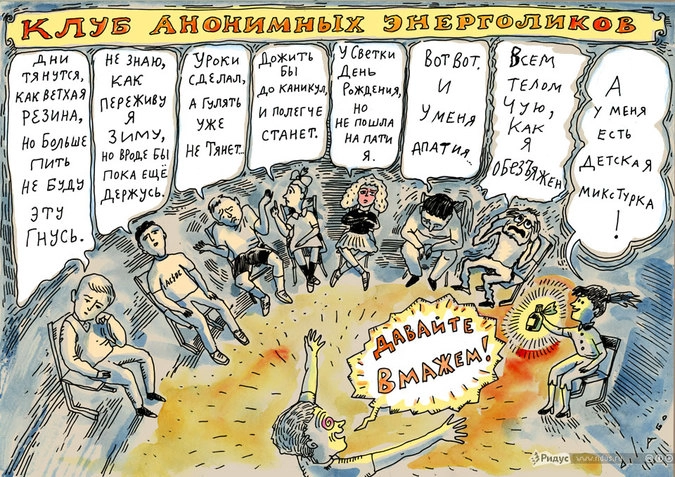 КЛУБ АНОНИМНЫХ ЭНЕРГОЛИКОВ
ДНИ
ТЯНУТСЯ,
КАК ВЕТХАЯ
РЕЗИНА,
НО БОЛЬШЕ
ПИТЬ
НЕ БУДУ
ЭТУ
ГНУСЬ.
НЕ ЗНАЮ,
КАК
ПЕРЕЖИВУ
Я
ЗИМУ,
НО ВРОДЕ БЫ
ПОКА ЕЩЁ
ДЕРЖУСЬ.
УРОКИ
СДЕЛАЛ,
А ГУЛЯТЬ
УЖЕ
НЕ ТЯНЕТ.
ДОЖИТЬ
БЫ
ДО КАНИКУЛ,
И ПОЛЕГЧЕ
СТАНЕТ.
У СВЕТКИ
ДЕНЬ
РОЖДЕНИЯ,
НО
НЕ ПОШЛА
НА ПАТИ
Я.
ВОТ ВОТ.
И
У МЕНЯ
АПАТИЯ...
ВСЕМ
ТЕЛОМ
ЧУЮ,
КАК
Я
ОБЕЗВЯЖЕН
А
У МЕНЯ
ЕСТЬ
ДЕТСКАЯ
МИКСТУРКА
!
AC/DC
ДАВАЙТЕ
ВМАЖЕМ!
Ридус